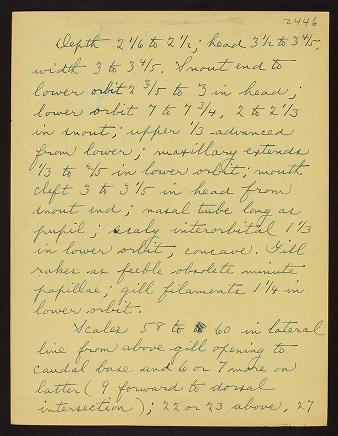 2446
Depth 2 1/6 to 2 1/2; head 3 1/2 to 3 4/5,
width 3 to 3 4/5. Snout end to
lower orbit 2 3/5 to 3 in head;
lower orbit 7 to 7 3/4, 2 to 2 1/3
in snout; upper 1/3 advanced
from lower; maxillary extends
1/3 to 2/5 in lower orbit; mouth
cleft 3 to 3 1/5 in head from
snout end; nasal tube long as
pupil; scaly interorbital 1 1/3
in lower orbit, concave. Gill
rakers as feeble obsolete minute
papillae; gill filaments 1 1/4 in
lower orbit.
Scales 58 to 60 in lateral
line from above gill opening to
caudal base and 6 or 7 more on
latter (9 forward to dorsal
intersection); 22 or 23 above, 27